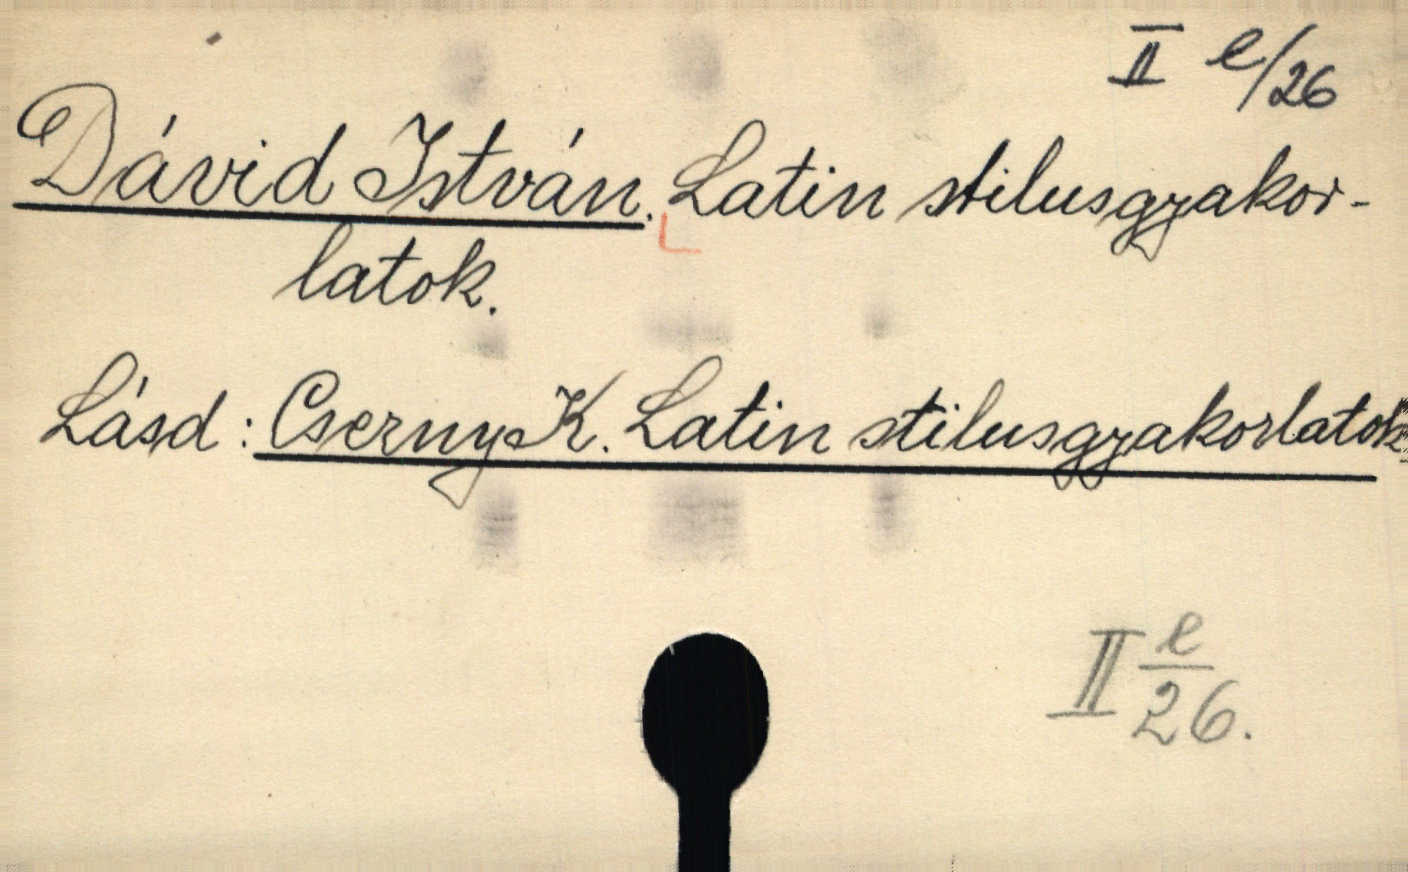 II e/26
Dávid István. Latin stilusgyakor-
latok.
Lásd: Cserny K. Latin stilusgyakorlatok
II e/26.